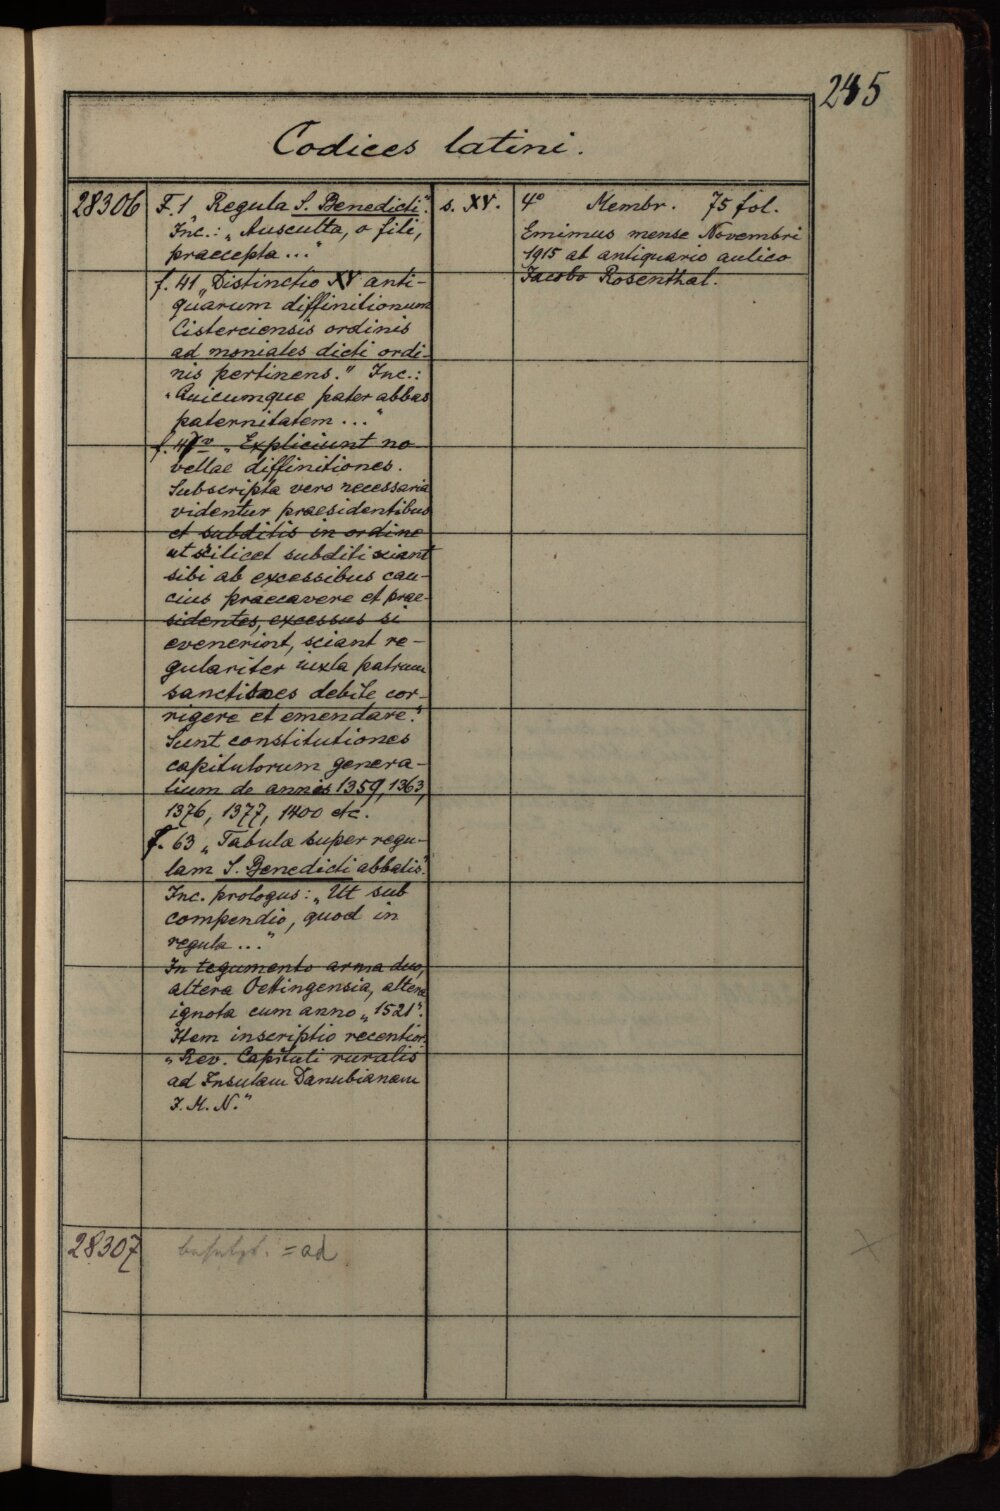 245
Codices latini.
28306
F. 1 „Regula S. Benedicti“.
Inc.: „Ausculta, o fili,
praecepta ...“
f. 41 „Distinctio XV anti-
quarum diffinitionum
Cisterciensis ordinis
ad moniales dicti ordi-
nis pertinens.“ Inc.:
„Quicumque pater abbas
paternitatem ...“
f. 47v „Expliciunt no-
vellae diffinitiones.
Subscripta vero necessaria
videntur praesidentibus
et subditis in ordine
ut scilicet subditi sciant
sibi ab excessibus cau-
cius praecavere et prae-
sidentes, excessus si
evenerint, sciant re-
gulariter iuxta patrum
sanctiones debite cor-
rigere et emendare.“
Sunt constitutiones
capitulorum genera-
lium de annis 1359, 1363,
1376, 1377, 1400 etc.
f. 63 „Tabula super regu-
lam S. Benedicti abbatis“.
Inc. prologus: „Ut sub
compendio, quod in
regula ...“
In tegumento arma duo,
altera Oettingensia, altera
ignota cum anno „1521“.
Item inscriptio recentior:
„Rev. Capituli ruralis
ad Insulam Danubianam
I. M. N.“
s. XV.
4° Membr. 75 fol.
Emimus mense Novembri
1915 ab antiquario aulico
Jacobo Rosenthal.
28307
= ad